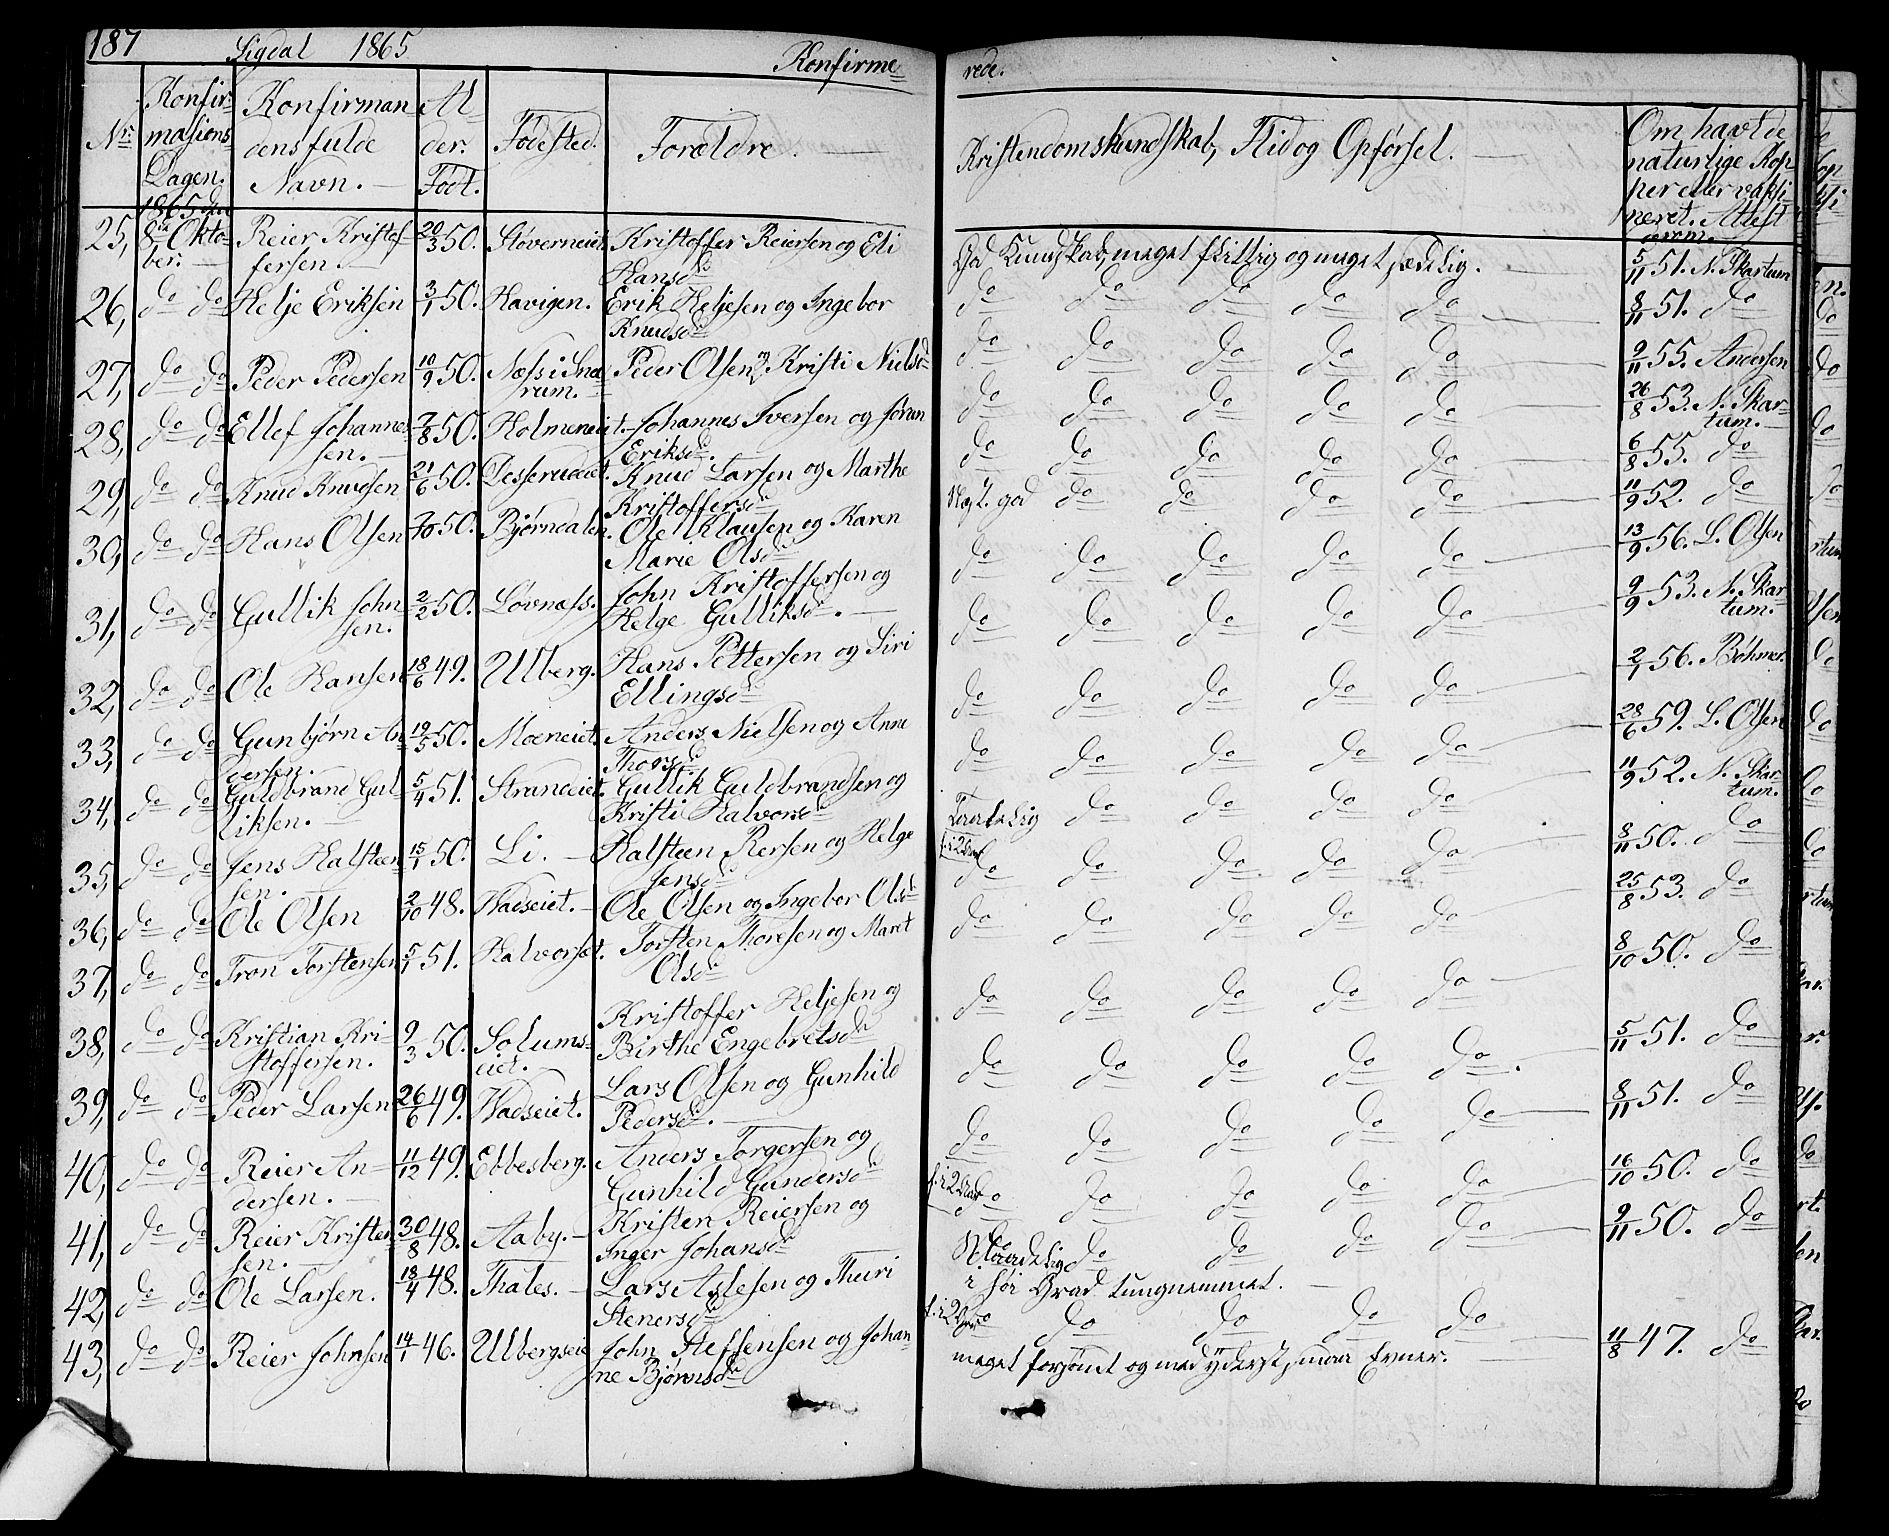 187 Sigdal 1865 Konfirme=
rede.
Nr. Konfir=masions Dagen. Konfirmandensfulde Navn. Alder. Født. Fødested. Forældre. Kristendomskundskab, Flid og Opførsel. Om havt de naturlige Kopper eller vaksineret. Attest derom.
1865 den
25, 8de Okto- Reier Kristof 20/3 50. Støverneiet Kristoffer Reiersen og Eli God Kundskab, meget flittig og meget sædelig. 5/11 51. N. Skartum
ber. fersen. Hansd.
26, do do Helje Eriksen 3/1 50. Havigen. Erik Heljesen og Ingebor do do do do do 8/11 51. do
Knudsd.
27, do do Peder Pedersen 10/9 50. Næss i Sna Peder Olsen og Kristi Nielsd. do do do do do 9/11 55. Andersen
rum.
28, do do Ellef Johannes 7/8 50. Holmeneiet. Johannes Iversen og Jøran do do do do do 26/8 53. N. Skar-
sen. Eriksd. tum.
29, do do Knud Knudsen 21/6 50. Dosserudeiet. Knud Larsen og Marthe do do do do do 6/8 55. do
Kristoffersd.
30, do do Hans Olsen 7/10 50. Bjørndalen. Ole Klausen og Karen god do do do do 11/9 52. do
Marie Olsd. 13/9 56. L. Olsen
31, do do Gullik John 2/2 50. Løvnæss. John Kristoffersen og do do do do do 9/9 53. N. Skar-
sen. Helge Gulliksd. tum.
32, do do Ole Hansen 18/6 49. Ulberg. Hans Pettersen og Siri do do do do do 2/1 56. Bøhmer.
Ellingsd.
33, do do Gunbjørn An 19/5 50. Moeneiet. Anders Nielsen og Anne do do do do do 28/6 59. L. Olsen
dersen. Thorsd.
34, do do Guldbrand Gul 5/4 51. Strandeiet. Gullik Guldbrandsen og do do do do do 11/9 52. N. Skar-
liksen. Kristi Halvorsd. tum.
35, do do Jens Halsteen 15/1 50. Li. Halsteen Persen og Helge Taalelig do do do do 8/11 50. do
sen. Jensd.
36, do do Ole Olsen 2/10 48. Hadseiet. Ole Olsen og Ingebor Olsd. do do do do do 25/8 53. do
37, do do Tron Torstensen 5/1 51. Halvorset. Torsten Thoresen og Maret do do do do do 8/10 50. do
Olsd.
38, do do Kristian Kri- 9/3 50. Solums- Kristoffer Heljesen og do do do do do 5/11 51. do
stoffersen. eiet. Birthe Engebretsd.
39, do do Peder Larsen 26/6 49. Hadseiet. Lars Olsen og Gunhild do do do do do 8/11 51. do
Pedersd.
40, do do Reier An- 11/12 49. Ebbesberg. Anders Torgersen og do do do do do 16/10 50. do
dersen. Gunhild Gundersd.
41, do do Reier Kristen 30/8 48. Aaby. Kristen Reiersen og do do do do do 9/11 50. do
sen. Inger Johansd.
42, do do Ole Larsen. 18/4 48. Thales. Lars Aslesen og Thuri do do do do
Stenersd. i høi Grad tungnemmet.
43, do do Reier Johnsen 14/1 46. Ulbergseie John Steffensen og Johan do do do do 11/8 47. do
ne Bjørnsd. meget forsømt og med yderst smaa Evner.